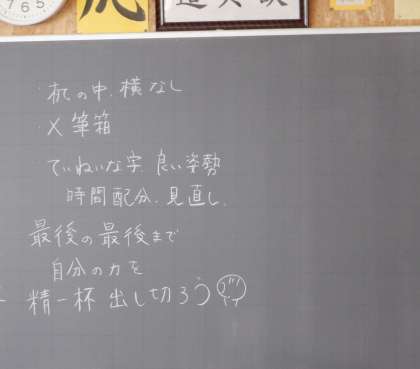 765
・机の中.横なし
・×筆箱
・ていねいな字.良い姿勢
時間配分.見直し.
最後の最後まで
自分の力を
精一杯出し切ろう